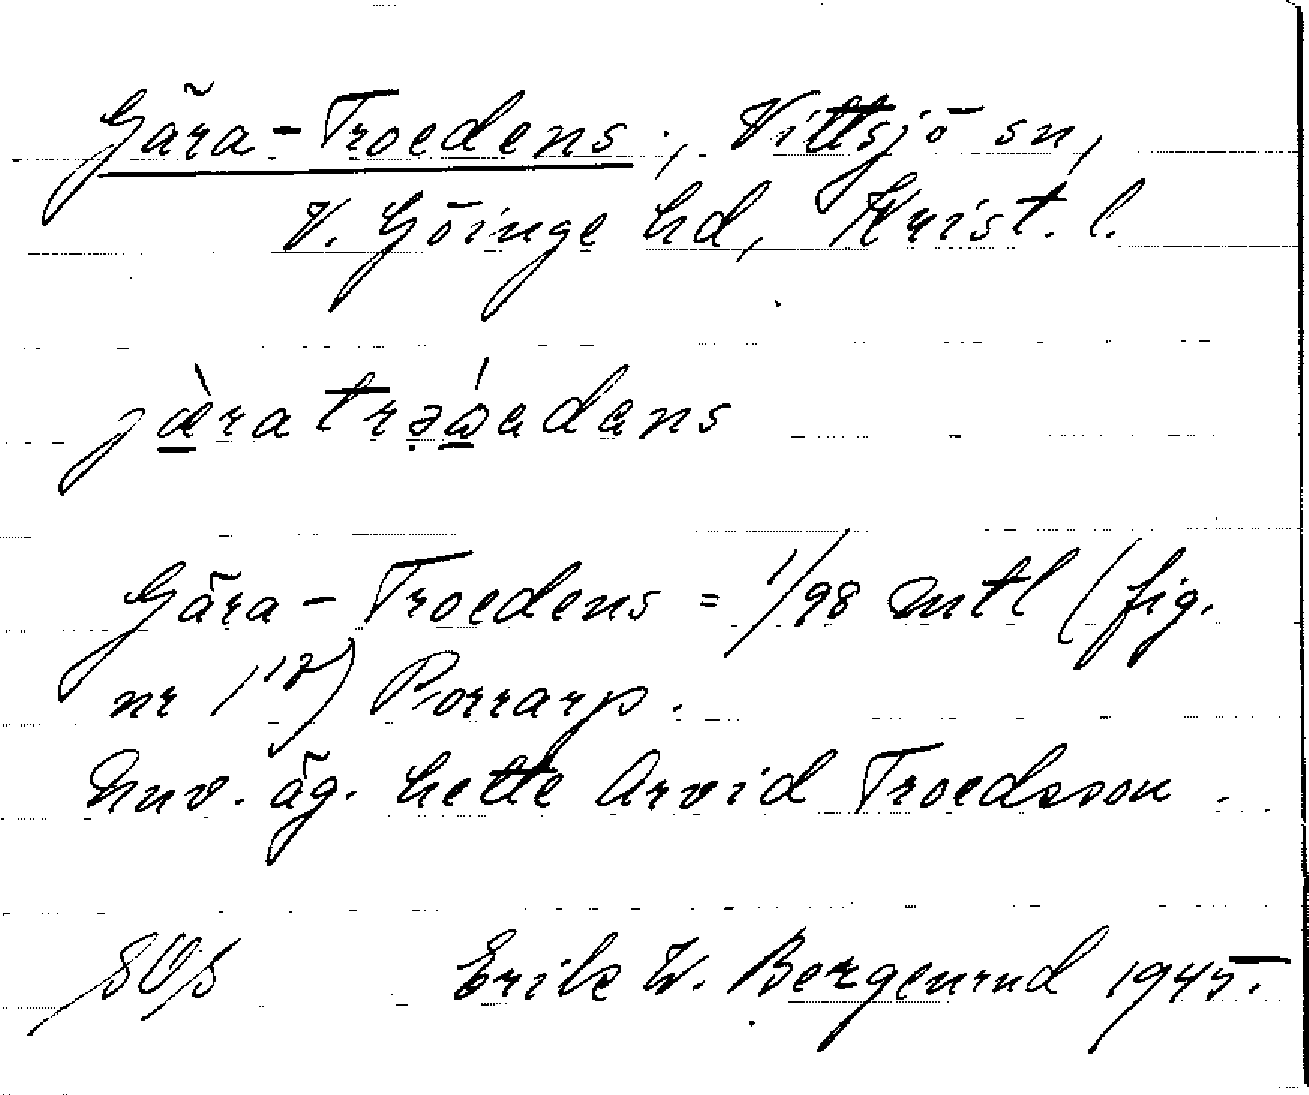 Gära-Troedens, Vittsjö sn,
V. Göinge hd, Krist. l.
jæ̀ra trəǻedens
Gära-Troedens = 1/98 mtl (fig.
nr 1¹⁷) Porrarp.
Nuv. äg. hette Arvid Troedsson.
Erik W. Bergenrud 1945.